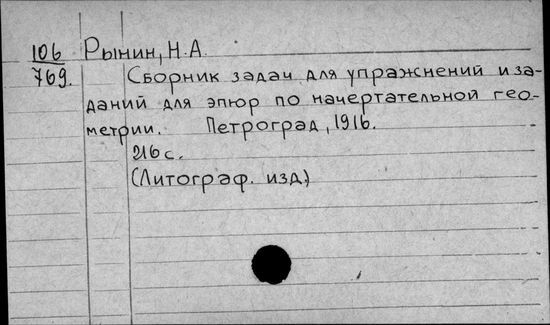 106 Рынин, Н.А.
769. Сборник задач для упражнений и за-
даний для эпюр по начертательной гео-
метрии. Петроград, 1916.
216 с.
(Литограф. изд.)